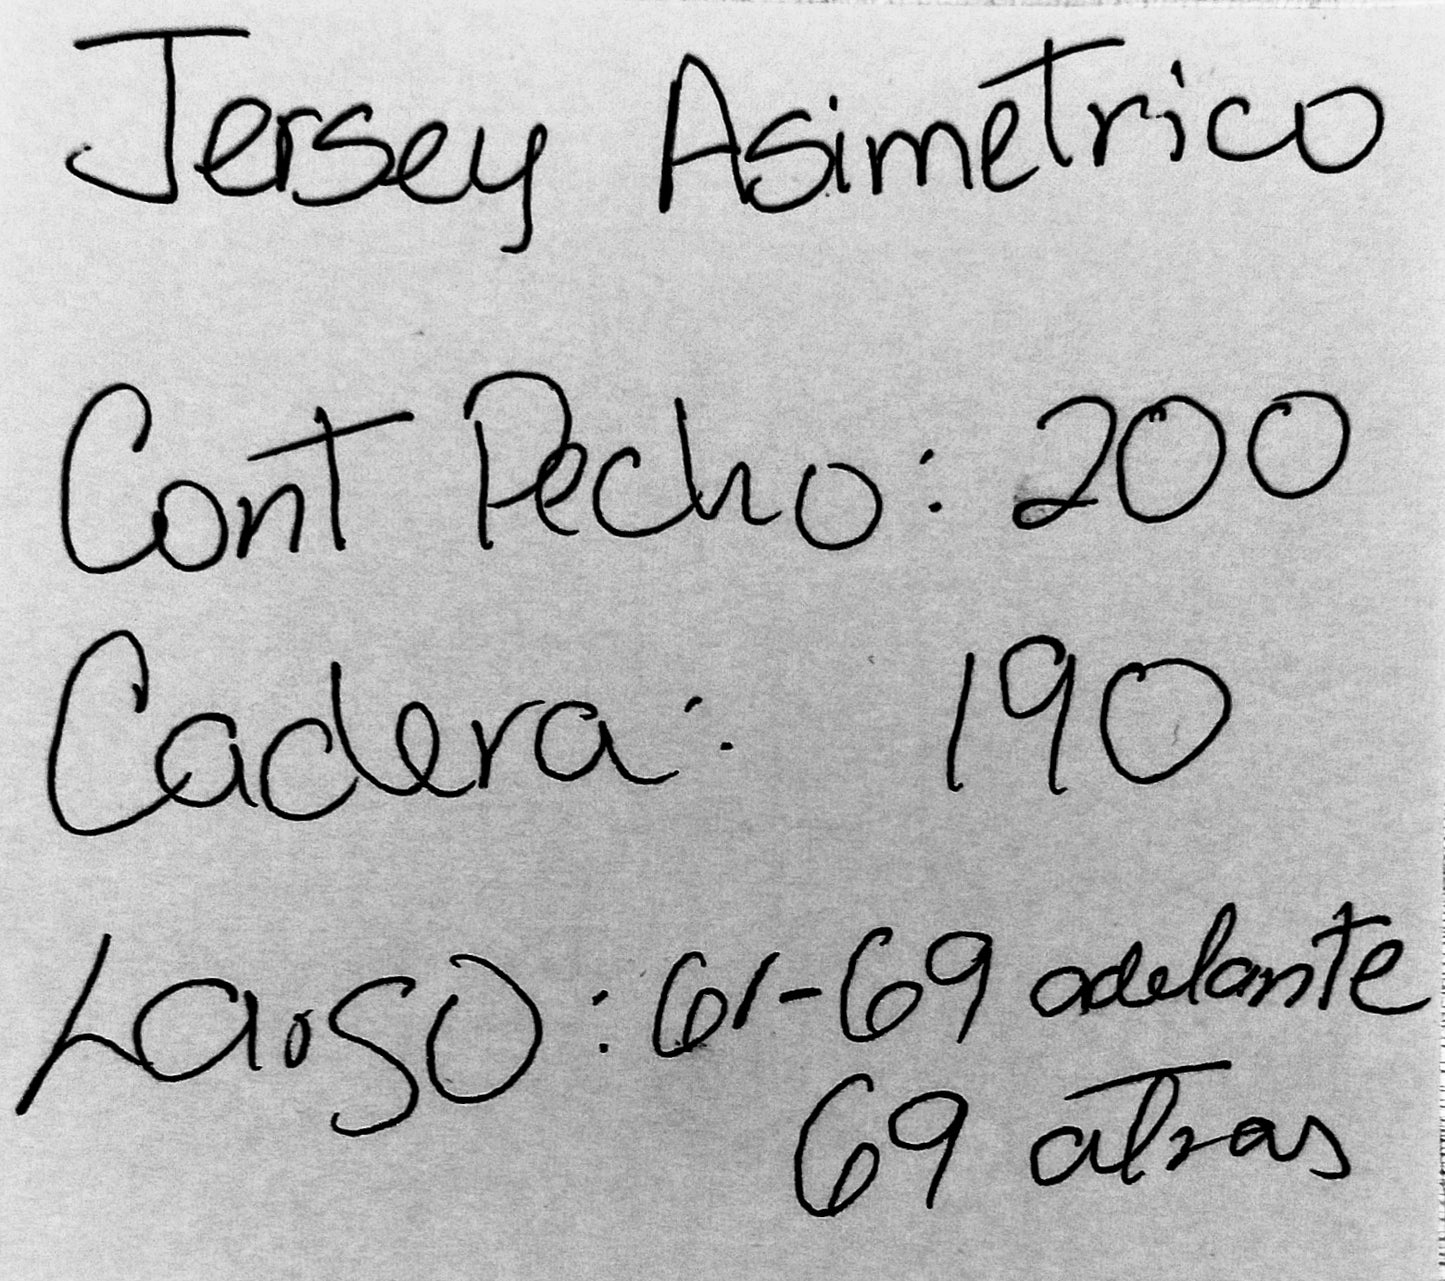 Jersey Asimetrico
Cont Pecho: 200
Cadera: 190
Largo: 61-69 adelante
69 atras